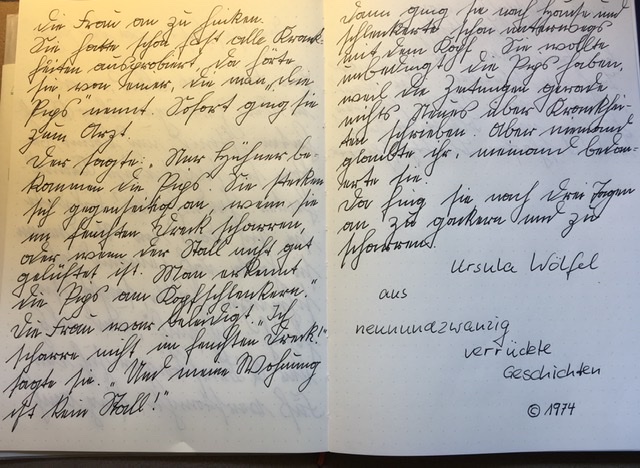 die Frau an zu hinken.
Sie hatte schon fast alle Krank-
heiten ausprobiert, da hörte
sie von einer, die man „die
Pips" nennt. Sofort ging sie
zum Arzt.
Der sagte: „Nur Hühner be-
kommen die Pips. Sie stecken
sich gegenseitig an, wenn sie
im feuchten Dreck scharren,
oder wenn der Stall nicht gut
gelüftet ist. Man erkennt
die Pips am Kopfschlenkern."
Die Frau war beleidigt. „Ich
scharre nicht im feuchten Dreck!"
sagte sie. „Und meine Wohnung
ist kein Stall!"
Dann ging sie nach Hause und
schlenkerte schon unterwegs
mit dem Kopf. Sie wollte
unbedingt die Pips haben,
weil die Zeitungen gerade
nichts Neues über Krankhei-
ten schrieben. Aber niemand
glaubte ihr, niemand bedau-
erte sie.
Da fing sie nach drei Tagen
an zu gackern und zu
scharren.
Ursula Wölfel
aus
neunundzwanzig
verrückte
Geschichten
© 1974